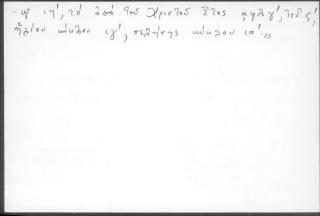 -ῳ ιη', τὸ ἀπὸ τοῦ Χριστοῦ ἔτος αφλγ', ἰνδ. ς',
ἡλίου κύκλου ιγ', σελήνης κύκλου ια'.,,